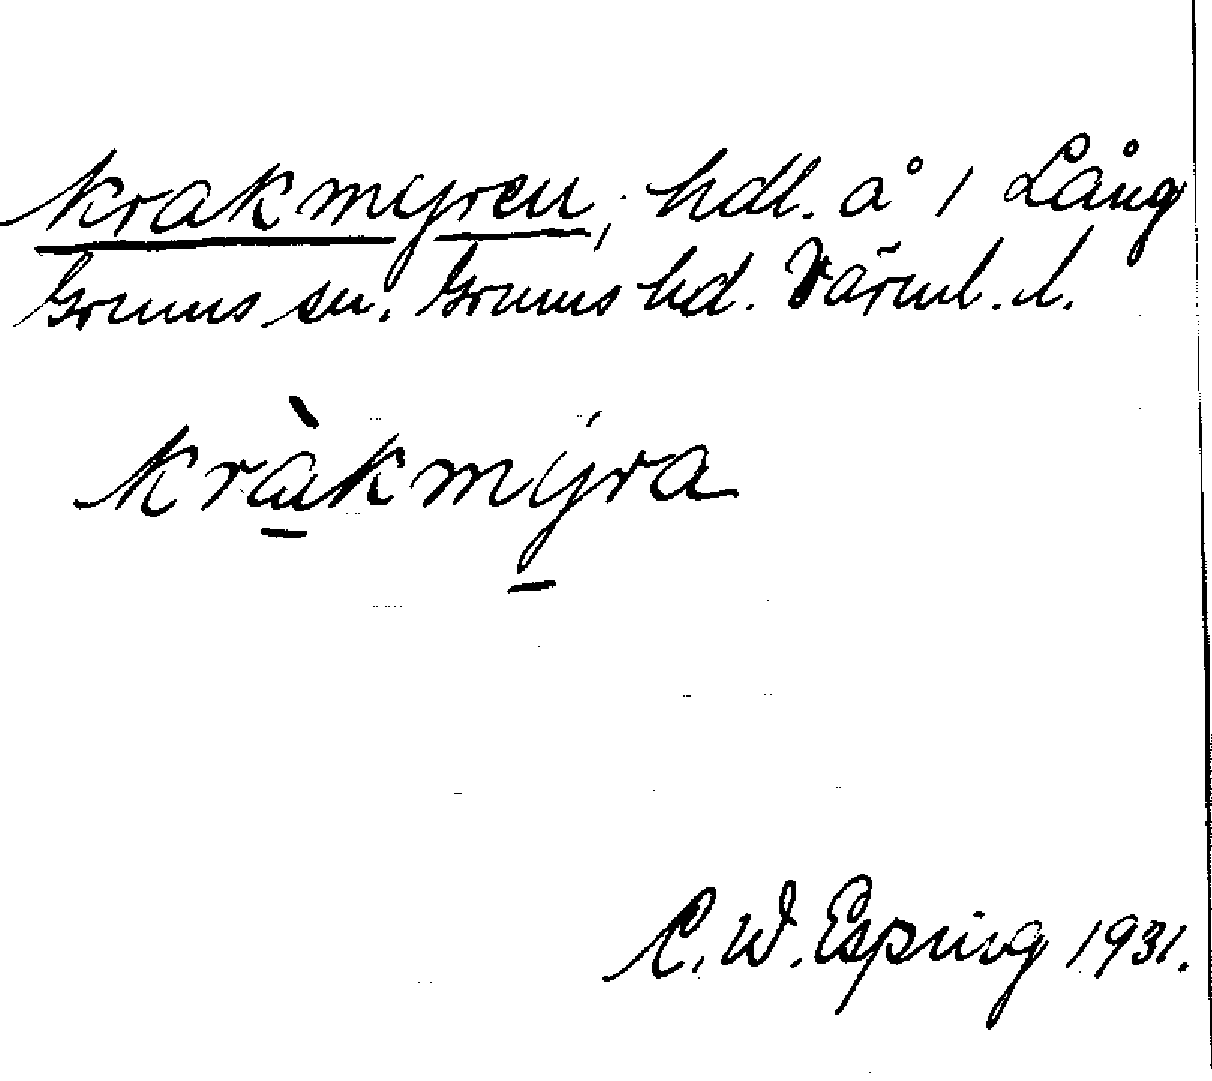 Krakmyren, hdl. å 1 Lång
Grums sn. Grums hd. Värml. l.
Kràkmýra
C. W. Esping 1931.